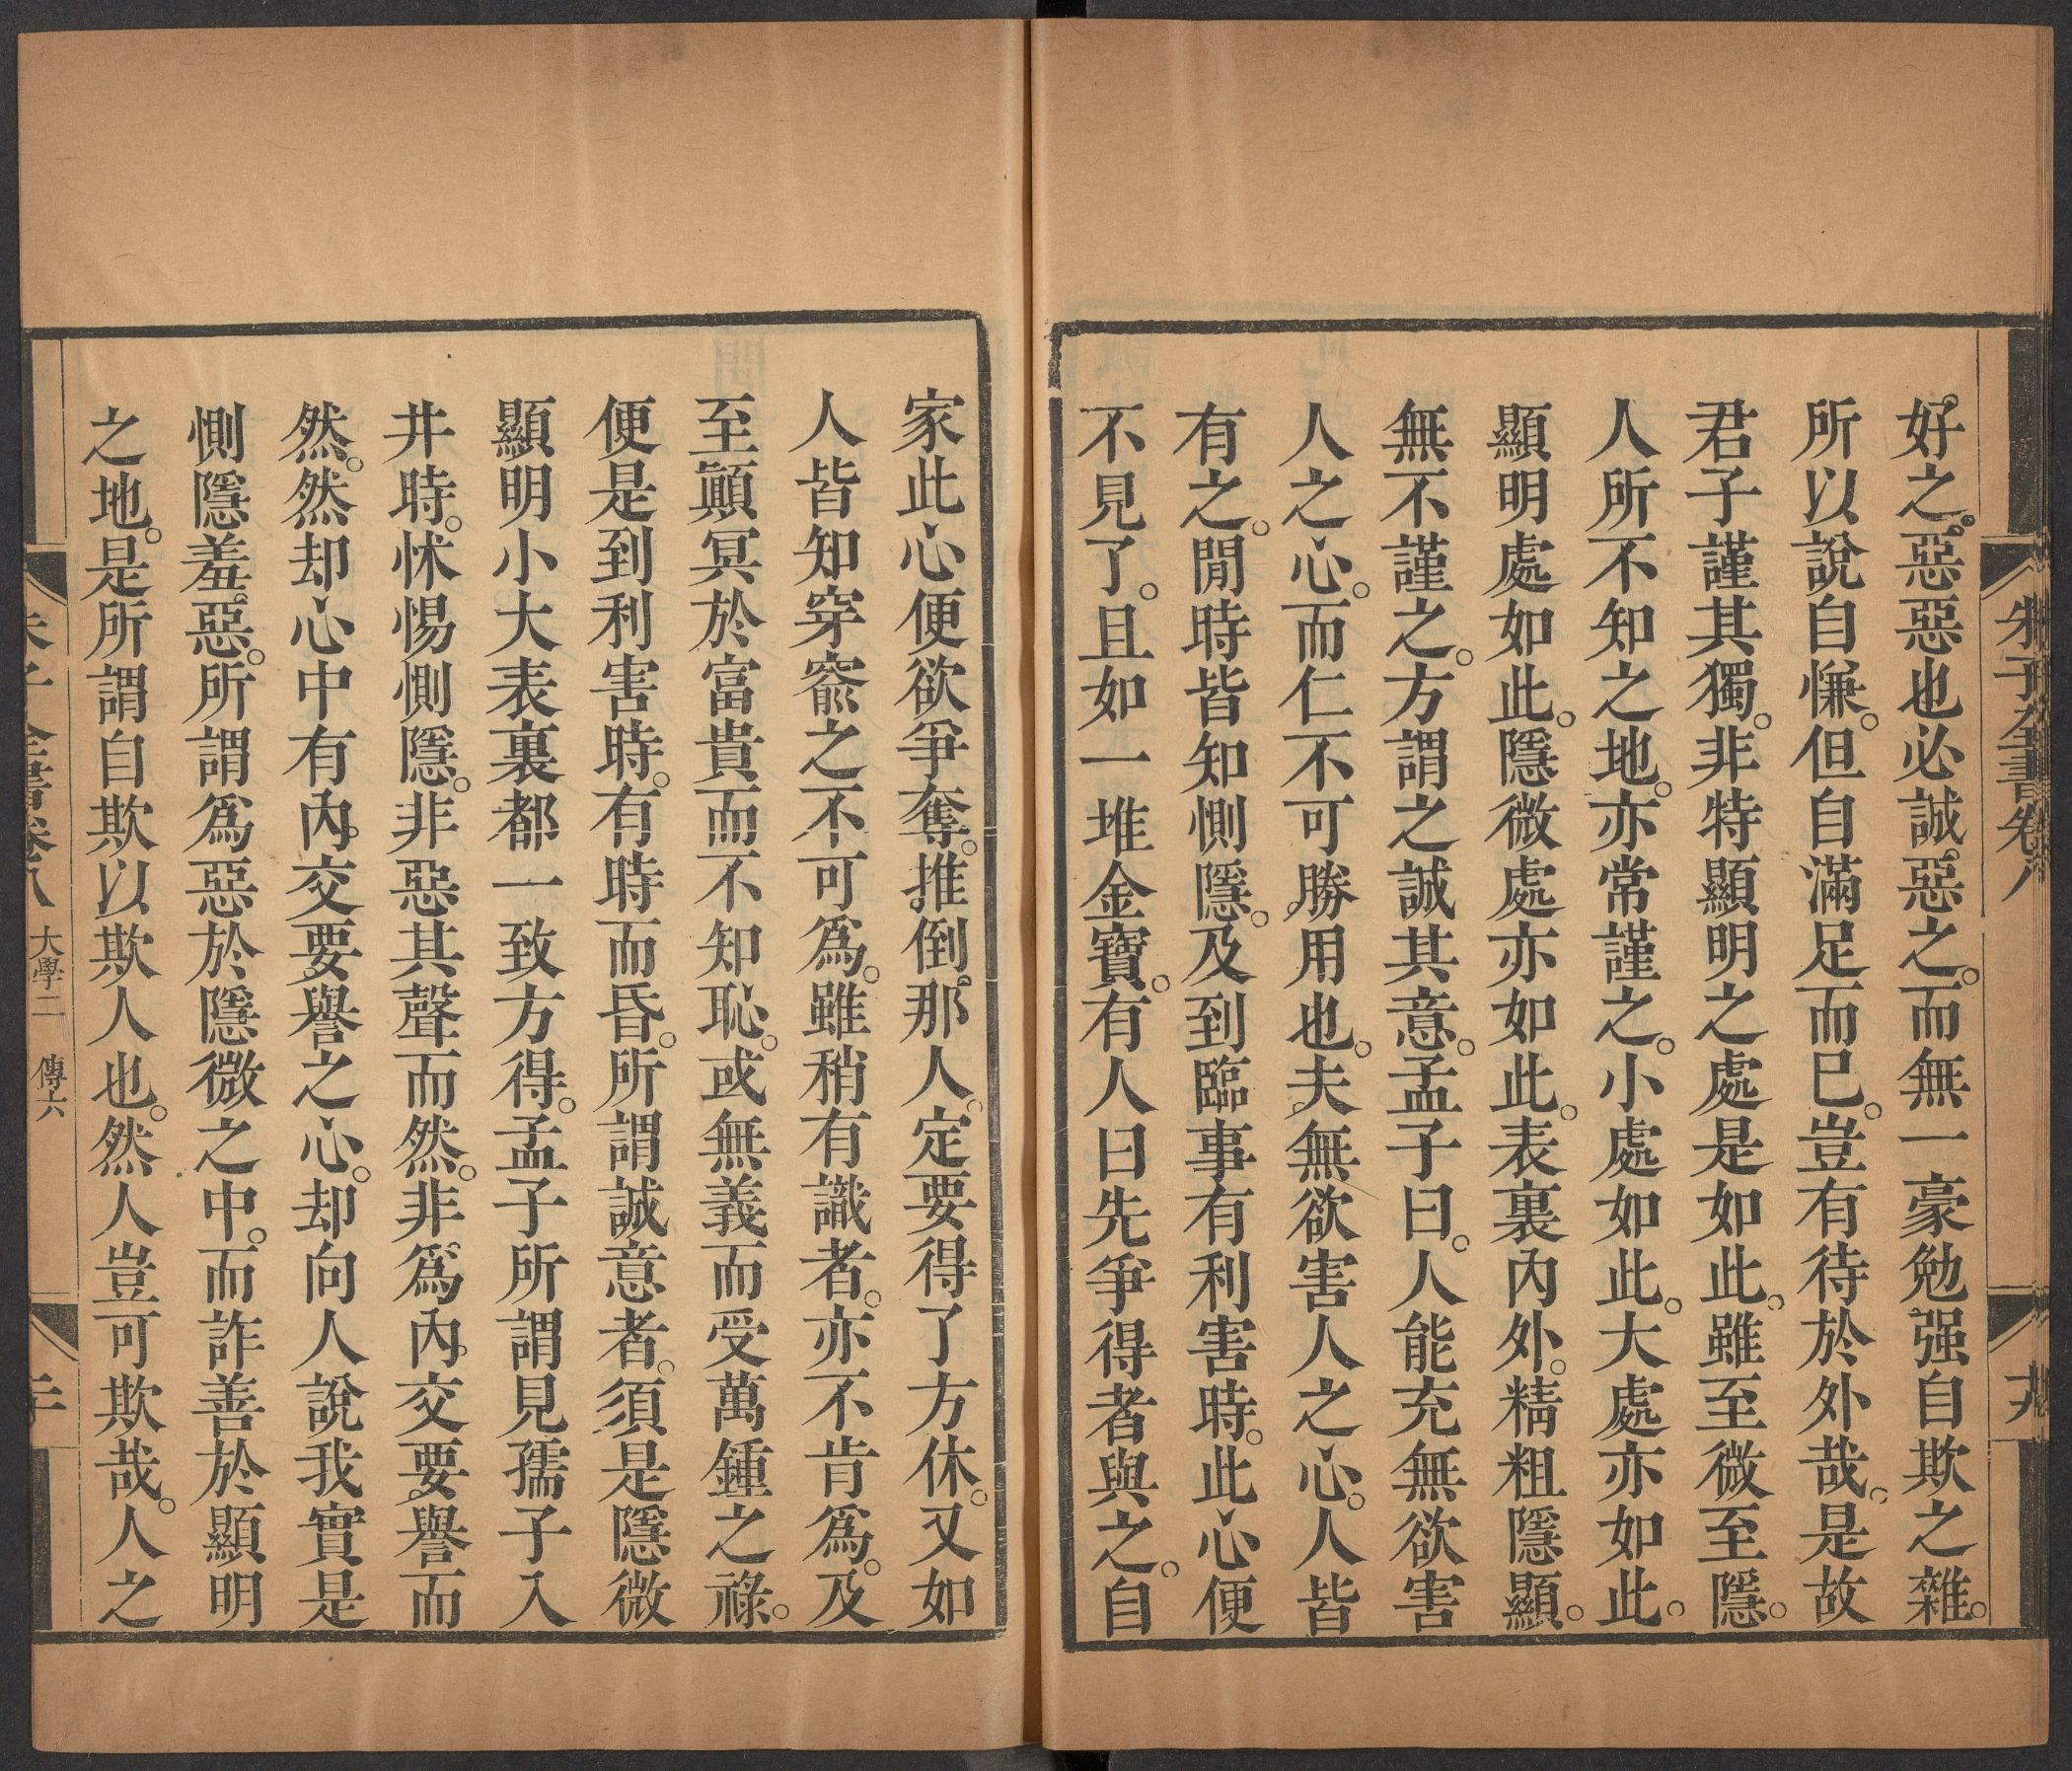 朱子全書卷八
十九
好之惡惡也必誠惡之。而無一豪勉强自欺之雜。
所以說自慊。但自滿足而已。豈有待於外哉。是故
君子謹其獨。非特顯明之處是如此。雖至微至隱。
人所不知之地。亦常謹之。小處如此。大處亦如此。
顯明處如此。隱微處亦如此。表裏內外。精粗隱顯。
無不謹之。方謂之誠其意。孟子曰。人能充無欲害
人之心。而仁不可勝用也。夫無欲害人之心。人皆
有之。閒時皆知惻隱。及到臨事有利害時。此心便
不見了。且如一堆金寶。有人曰先爭得者與之。自
家此心便欲爭奪。推倒那人。定要得了方休。又如
人皆知穿窬之不可爲。雖稍有識者。亦不肯爲。及
至顚冥於富貴而不知恥。或無義而受萬鍾之祿。
便是到利害時。有時而昏。所謂誠意者。須是隱微
顯明小大表裏都一致方得。孟子所謂見孺子入
井時。怵惕惻隱。非惡其聲而然。非爲內交要譽而
然。然却心中有內交要譽之心。却向人說我實是
惻隱羞惡。所謂爲惡於隱微之中。而詐善於顯明
之地。是所謂自欺以欺人也。然人豈可欺哉。人之
朱子全書卷八 大學二 傳六
二十